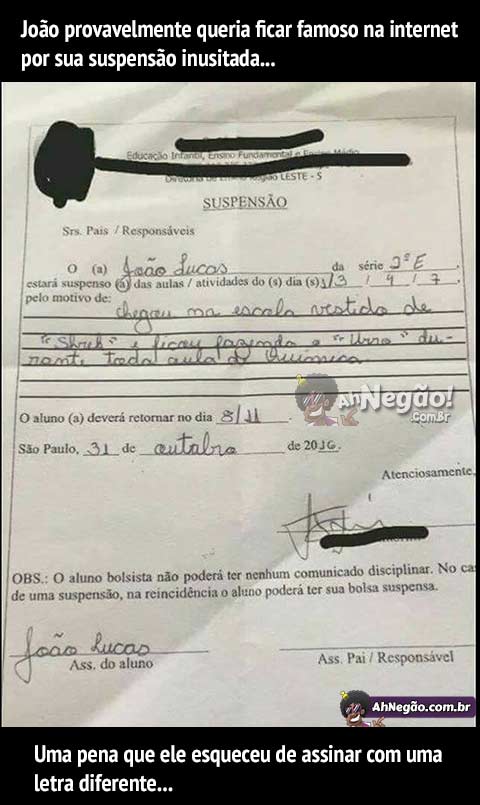 João provavelmente queria ficar famoso na internet
por sua suspensão inusitada...
Educação Infantil, Ensino Fundamental e Ensino Médio
LESTE - 5
SUSPENSÃO
Srs. Pais / Responsáveis
O (a) João Lucas da série 2º E
estará suspenso (a) das aulas / atividades do (s) dia (s) 1/3 / 4 / 7
pelo motivo de: chegou na escola vestido de
"Shrek" e ficou fazendo o "Urro" du-
rante toda aula de Química.
AhNegão!
.com.Br
O aluno (a) deverá retornar no dia 8/11
São Paulo, 31 de outubro de 2016.
Atenciosamente,
OBS.: O aluno bolsista não poderá ter nenhum comunicado disciplinar. No cas
de uma suspensão, na reincidência o aluno poderá ter sua bolsa suspensa.
João Lucas
Ass. do aluno
Ass. Pai / Responsável
AhNegão.com.br
Uma pena que ele esqueceu de assinar com uma
letra diferente...